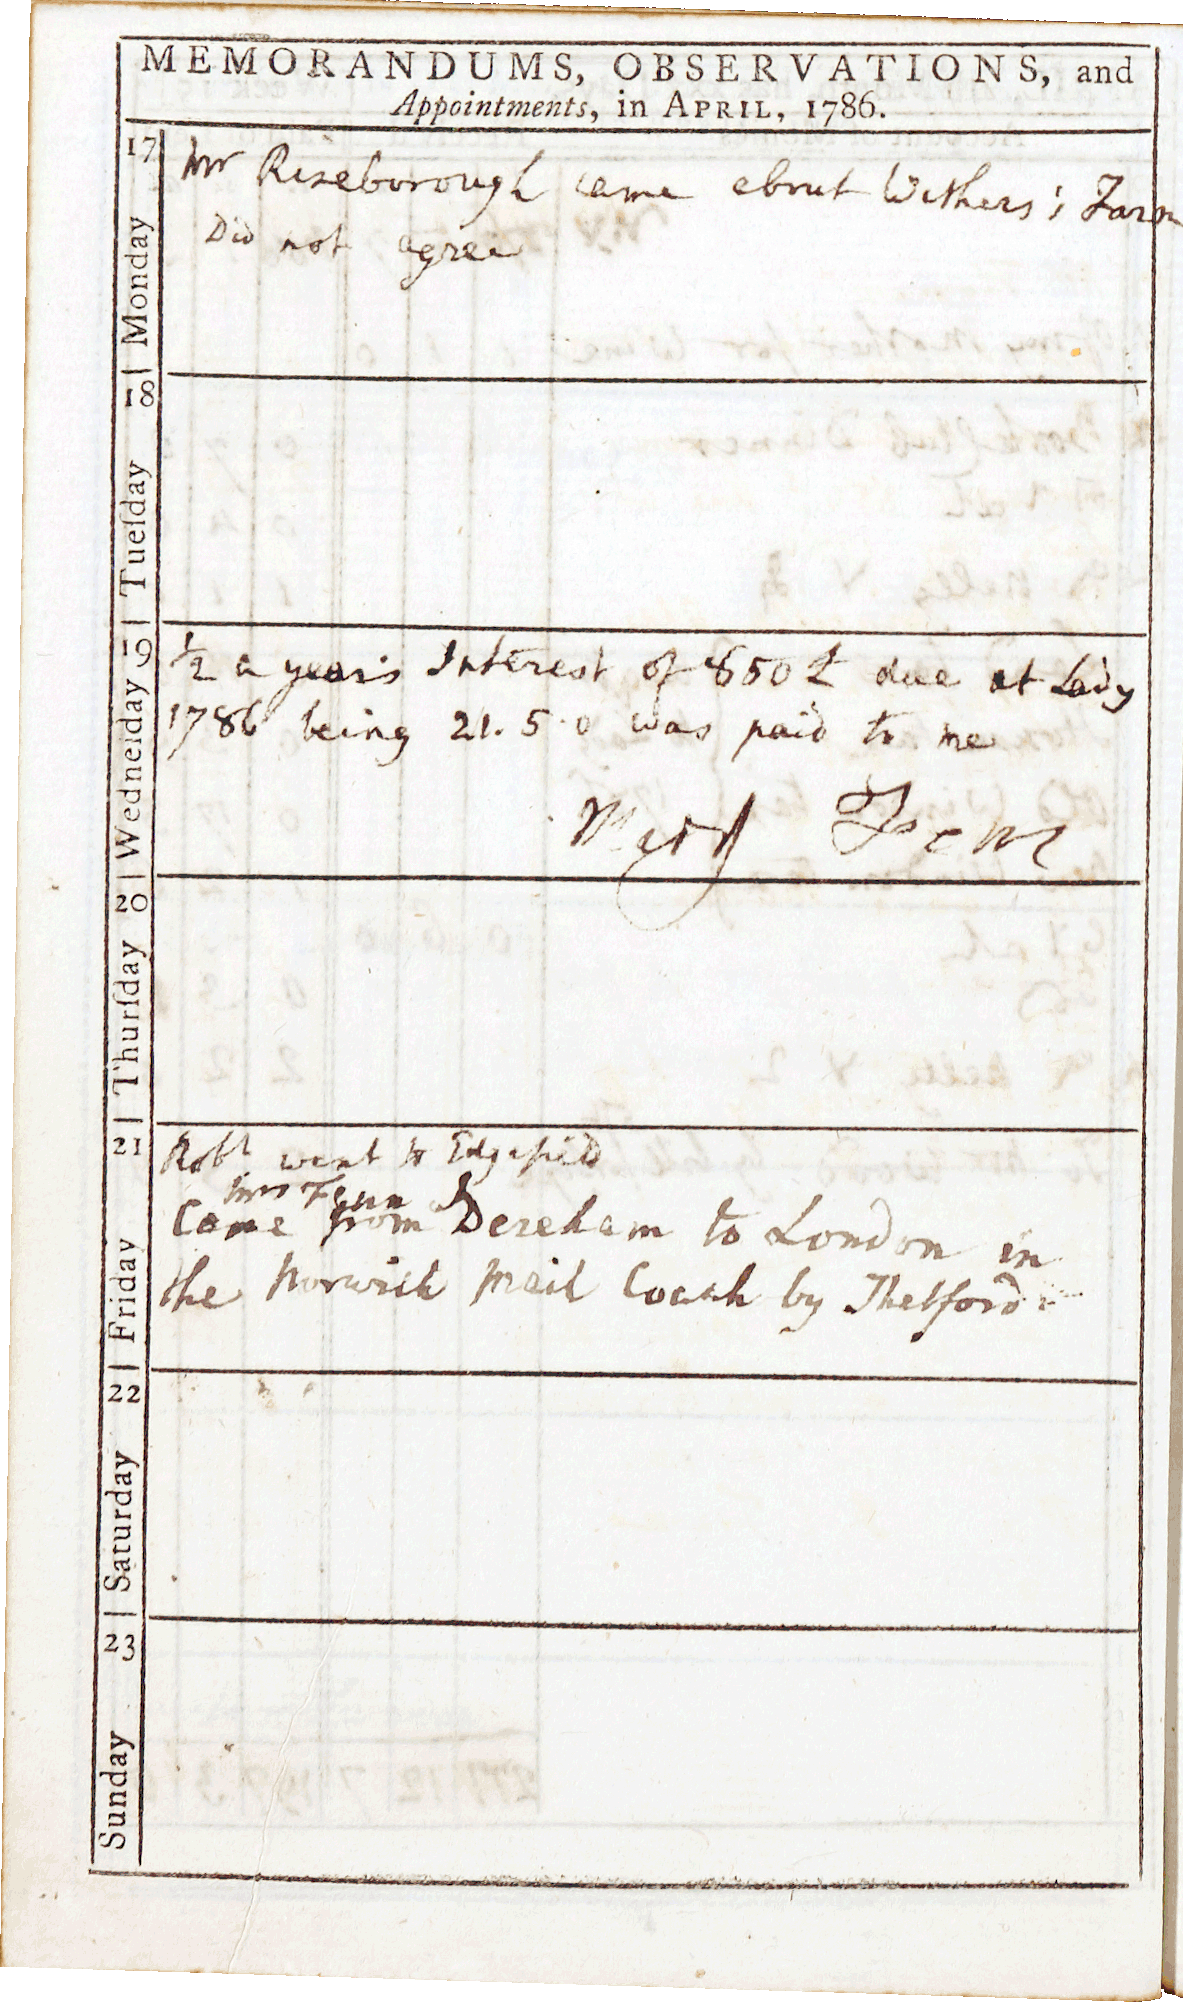 MEMORANDUMS, OBSERVATIONS, and
Appointments, in APRIL, 1786.
17 Monday
Mr Riseborough came about Withers's Farm
Did not agree
18 Tueſday
19 Wedneſday
½ a year's Interest of 850£ due at Lady
1786 being 21. 5. 0 was paid to me
Mary Fenn
20 Thurſday
21 Friday
Robt went to Edgefield
Mrs Fenn & I
Came from Dereham to London in
the Norwich Mail Coach by Thetford
22 Saturday
23 Sunday